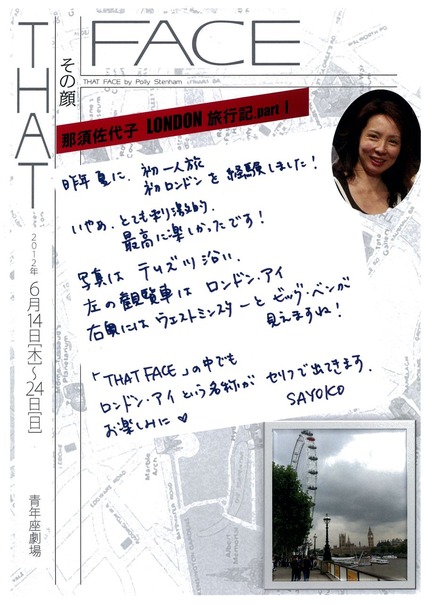 THAT
FACE
その顔
THAT FACE by Polly Stenham
那須佐代子 LONDON 旅行記.part 1
昨年夏に、初一人旅
初ロンドンを経験しました!
いやぁ、とても刺激的、
最高に楽しかったです!
写真はテムズ沿い、
左の観覧車はロンドン・アイ
右奥にはウェストミンスターとビッグ・ベンが
見えますね!
「THAT FACE」の中でも
ロンドン・アイという名称がセリフで出てきます。
お楽しみに♥
SAYOKO
2012年 6月14日[木]~24日[日]
青年座劇場
Marble
Arch
Albert
Memorial